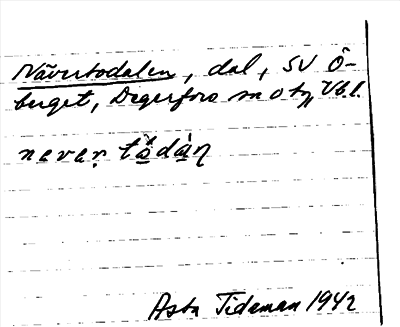 Nävertodalen, dal, SV Ö-
berget, Degerfors sn o tg, Vb.l.
nevaṛ tå̱da̱ŋ
Asta Tideman 1942